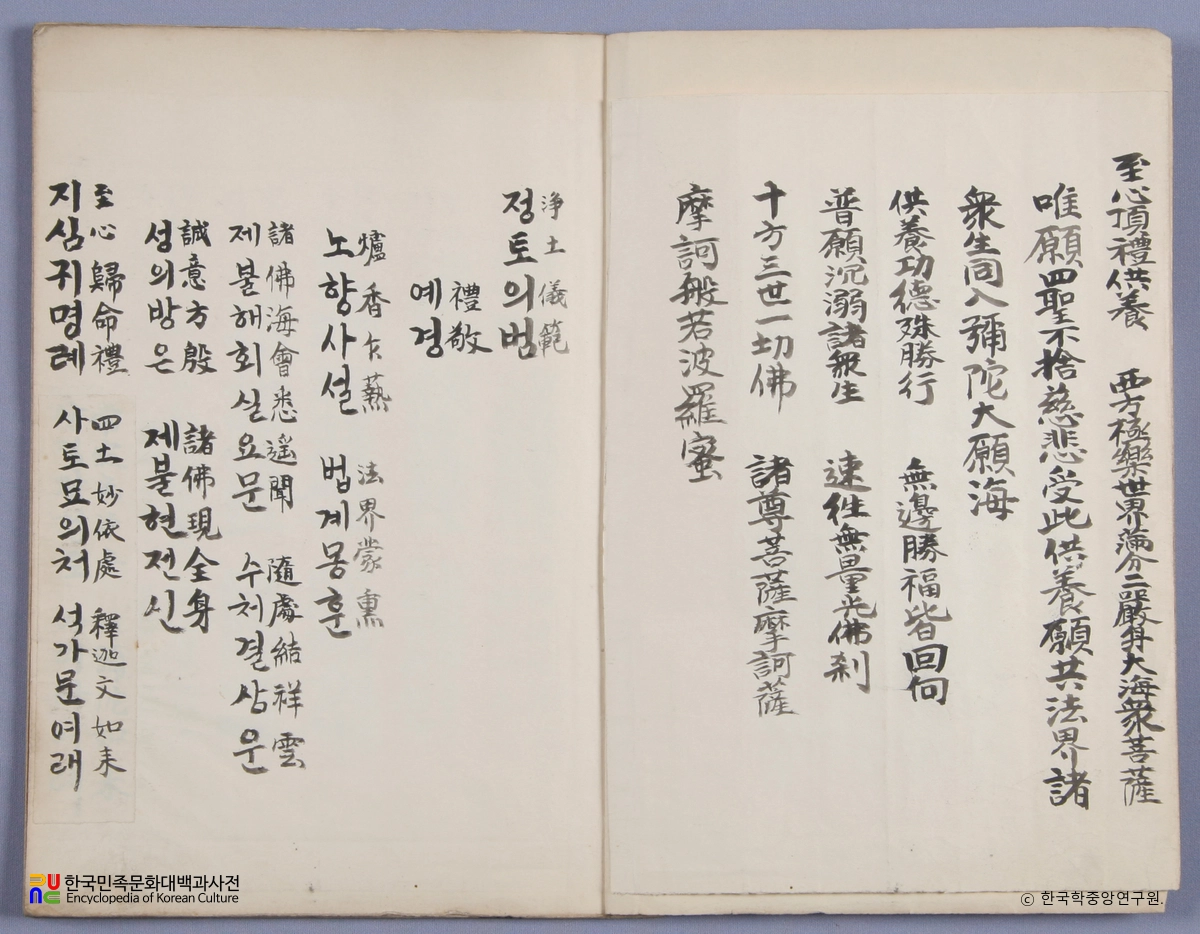 至心頂禮供養 西方極樂世界滿分二嚴身大海衆菩薩
唯願四聖不捨慈悲受此供養願共法界諸
衆生同入彌陀大願海
供養功德殊勝行 無邊勝福皆回向
普願沉溺諸衆生 速徃無量光佛刹
十方三世一切佛 諸尊菩薩摩訶薩
摩訶般若波羅蜜
淨土儀範
정토의범
禮敬
예경
爐香乍爇 法界蒙熏
노향사설 법계몽훈
諸佛海會悉遥聞 隨處結祥雲
제불해회실요문 수처결상운
誠意方殷 諸佛現全身
성의방은 제불현전신
至心歸命禮 四土妙依處 釋迦文如来
지심귀명례 사토묘의처 석가문여래
한국민족문화대백과사전
Encyclopedia of Korean Culture
ⓒ 한국학중앙연구원.